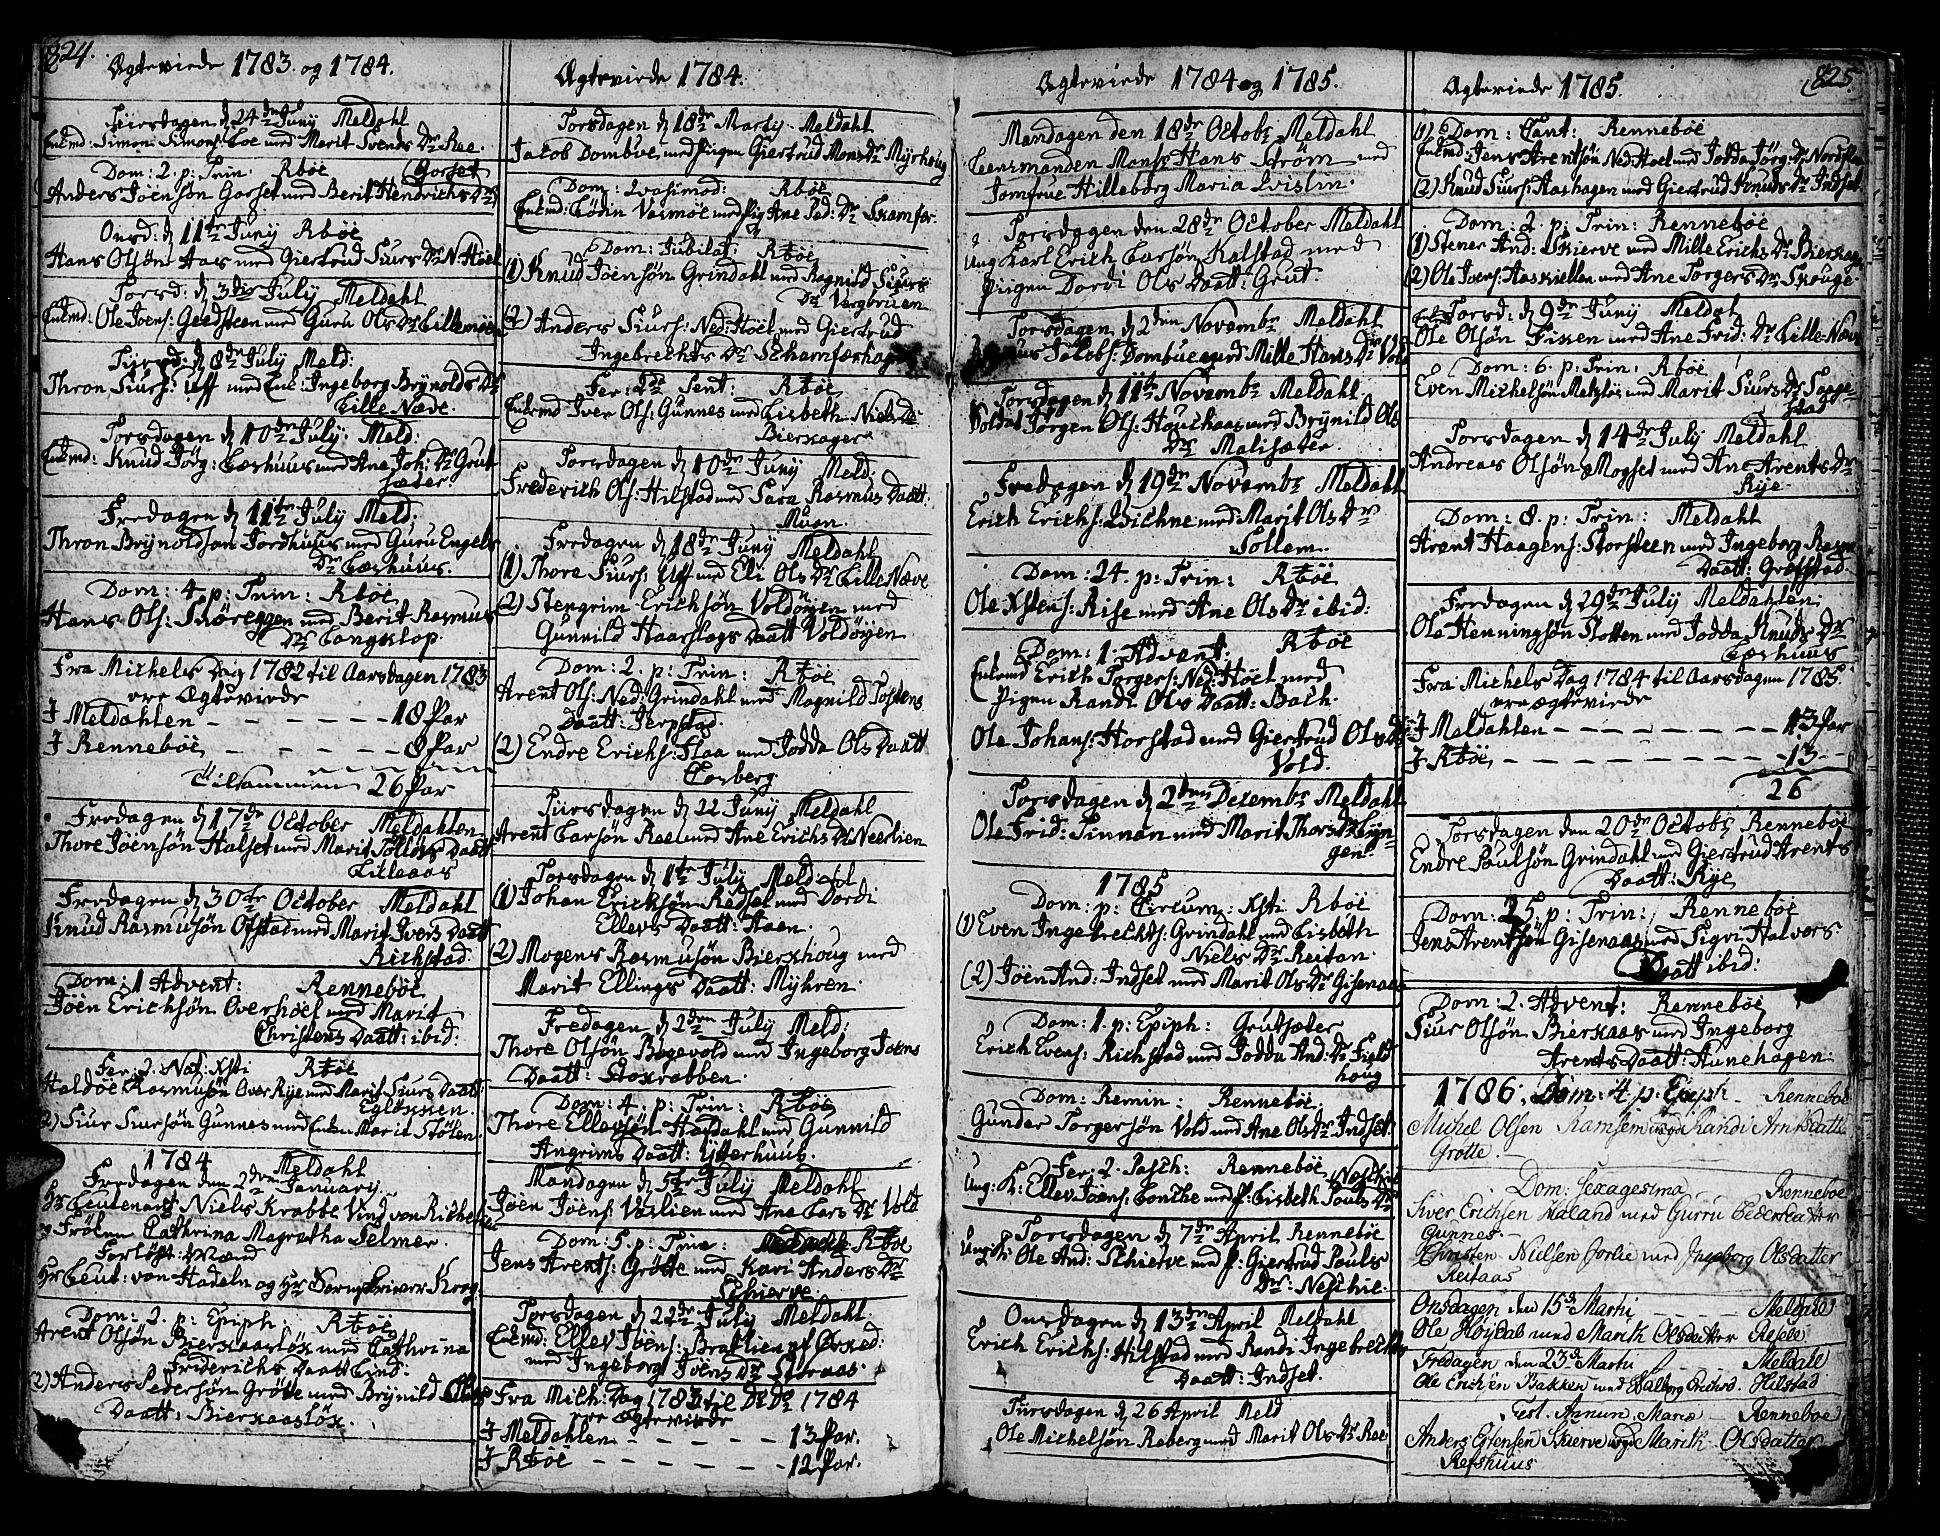 824.
Ægteviede 1783 og 1784.
Tiirsdagen d 24de Juny Meldahl
Enkemd: Simon Simons: Loe med Marit Svends Dr Rae.
Dom: 2. p: Trin. Rbøe Gorset
Anders Joensøn Gorset med Berit Hendrichs Dr
Onsd: d 11te Juny Rbøe
Hans Olsøn Aas med Giertrud Siurs Dr N. Høel
Torsd: d 3die July Meldahl
Enkmd: Ole Joens: Geedsteen med Guru Ols Dr Lillemoe
Tiirsd: d 8de July Meld:
Thron Siurs: Uff med Enk: Ingeborg Brynolds Dr
Lille Næve.
Torsdagen d 10de July: Meld:
Enkmd: Knud Jørg: Læshuus med Ane Joh: Dr Grut
sæder.
Fredagen d 11te July Meld:
Thron Brynoldsøn Jordhuus med Guru Engels
Dr Læshuus.
Dom: 4. p: Trin: Rbøe
Hans Ols: Skøreggen med Berit Rasmus
Dr Langklop.
Fra Michels Dag 1782 til Aarsdagen 1783
ere Ægteviede
I Meldahlen - - - - - - 18 Par
I Rennebøe - - - - - 8 Par
Tilsammen 26 Par
Fredagen d 17de October Meldahlen
Thore Joensøn Halset med Marit Tollevs Daatt
Lilleaas
Fredagen d 30te October Meldahl
Knud Rasmusøn Ofstad med Marit Ivers Daatt
Richstad.
Dom: 1 Advent: Rennebøe
Joen Erichsøn Overhøel med Marit
Christens Daatt: ibid:
Fer: 2. Nat: Xsti Rbøe
Haldoe Rasmusøn Over Rye med Marit Siurs Daatt:
Egløkken.
2) Siur Siursøn Gunnes med Enken Marit Stølen
1784 Meldahl
Fredagen den 2den January
Hr Leutenant Niels Krabbe Vind von
og Frølen Cathrina Magretha Selmer.
Forløft: Mænd
Hr Leut: von Hadeln og Hr Sorenskriver Krog
Dom: 3. p: Epiph: Rbøe
Arent Olsøn Bierkaasløk med Cathrina
Friderichs Daatt Lind:
(2) Anders Pedersøn Grøtte med Brynild
Daatt: Bierkaasløk.
Ægteviede 1784.
Torsdagen d 18de Marty. Meldahl
Jacob Dombue med Pigen Giertrud Mons Dr Myrhoug
Dom: Qvasimod: Rbøe
Enkmd: Lodin Vasmoe med Pig Ane Ped: Dr Skamfer
Dom: Jubilat: Rbøe
(1) Knud Joensøn Grindahl med Ragnild Siurs
Dr Vergbruen
(2) Anders Siurs: Ned: Høel med Giertrud
Ingebrechts Dr Schamfærhage
Fer: 2de Pent: Rbøe
Enkmd Iver Ols: Gunnes med Lisbeth Niels Dr
Bierkager
Torsdagen d 10de Juny Meld:
Frederich Ols: Hilstad med Sara Rasmus Daatt:
Muan.
Fredagen d 18de Juny Meldahl
(1) Thore Siurs: Uff med Eli Ols Dr Lille Næve
2) Stengrim Erichsøn Voldøyen med
Gunnild Haarslags Daatt Voldøyen
Dom: 2. p: Trin: Rbøe
Arent Ols: Ned: Grindahl med Magnild Tostens
Daatt: Jerpstad
(2) Endre Erichs: Flaa med Jodda Ols Daatt
Torberg
Tiirsdagen d 22 Juny Meldahl
Arent Larsøn Rae med Ane Erichs Dr Neerlien
Torsdagen d 1te July Meldahl
(1) Johan Erichsøn Radset med Dordi
Ellevs Daatt: Haen.
(2) Mogens Rasmusøn Bierkhoug med
Marit Ellings Daatt: Myhren.
Fredagen d 2den July Meld:
Thore Olsøn Bogevold med Ingeborg Joens
Daatt: Stokrabben.
Dom: 4. p: Trin: Rbøe
Thore Ellevsøn Hafdahl med Gunnild
Angrims Daatt: Ytterhuus.
Mandagen d 5te July Meldahl
Joen Joens: Væslien med Ane Lars Dr Vold
Dom: 5. p: Trin: Rbøe
Jens Arents: Grøtte med Kari Anders Dr
Schierve
Torsdagen d 22de July Meldahl.
Enkmd: Ellev Joens: Bratlien af Ørked:
med Ingeborg Joens Dr Storaas.
Fra Mich: Dag 1783 til Do Do 1784
ere Ægteviede
I Meldahlen - - - - - 13 Par.
I Rbøe - - - - - - 12 Par.
Ægteviede 1784 og 1785.
Mandagen den 18de Octobr Meldahl
Lensmanden Monsr Hans Strøm med
Jomfrue Hilleborg Maria Qvislin.
Torsdagen den 28de October Meldahl
Ung Karl Erich Larsøn Kalstad med
Pigen Dordi Ols Daatt: Grut
Torsdagen d 2den Novembr Meldahl
Jacobs: Dombue med Mille Hans Dr Vold
Torsdagen d 11te Novembr Meldahl
Soldat Jørgen Ols: Houckaas med Brynild Ols
Dr Malisæter.
Fredagen d 19de Novembr Meldahl
Erich Erichs: Qviehne med Marit Ols Dr
Sollem.
Dom: 24. p: Trin: Rbøe
Ole Xstens: Rise med Ane Ols Dr ibid:
Dom: 1. Advent: Rbøe
Enkmd Erich Torgers: Ned: Høel med
Pigen Randi Ols Daatt: Bach.
Ole Johans: Horstad med Giertrud Ols Dr
Vold.
Torsdagen d 2den Decembr Meldahl
Ole Frid: Sinnan med Marit Thors Dr Lyn-
gen.
1785
Dom: p: Circum: Xsti Rbøe
(1) Even Ingebrechts: Grindahl med Lisbeth
Niels Dr Reitan.
(2) Joen And: Indset med Marit Ols Dr Gisenaas
Dom: 1. p: Epiph: Grutsæter
Erich Evens: Richstad med Jodda And: Dr Field
houg
Dom: Remin: Rennebøe.
Gunder Torgersøn Vold med Ane Ols Dr Indset.
Fer: 2. Pasch: Rennebøe Neschie
Ung: K: Ellev Joens: Lonche med P: Lisbeth Pouls Dr
Torsdagen d 7de April Rennebøe
Ung K: Ole And: Schierve med P: Giertrud Pouls
Dr: Neschie.
Onsdagen d 13de April Meldahl
Erich Erichs: Hilstad med Randi Ingebrechts
Daatt: Indset.
Tiirsdagen d 26 April Meld
Ole Michelsøn Raberg med Marit Ols Dr Rae
Ægteviede 1785.
825.
1) Dom: Cant: Rennebøe
Enkmd: Jens Arentsøn Ned: Hoel med Jodda Jørg: Dr Nordskou
(2) Knud Siurs: Aashagen med Giertrud Knuds Dr Indset
Dom: 2. p: Trin: Rennebøe
(1) Stener And: Skierve med Mille Erichs Dr Bierkager
(2) Ole Joens: Haskiellen med Ane Torgers Dr Skouge
Torsd: d 9de Juny Meldal
Ole Olsøn Fissen med Ane Frid: Dr Lille-Næve
Dom: 6. p: Trin: Rbøe
Even Michelsøn Metzløs med Marit Siurs Dr Saage
stad
Torsdagen d 14de July Meldahl
Andreas Olsøn Mogset med Ane Arents Dr
Rye.
Dom: 8. p: Trin: Meldahl
Arent Haagens: Storsteen med Ingeborg Rasm
Daatt: Grefstad.
Fredagen d 29de July Meldahlen
Ole Henningsøn Slotten med Jodda Knuds Dr
Læshuus
Fra Michels Dag 1784 til Aarsdagen 1785
ere Ægteviede
I Meldahlen - - - - - - - 13 Par
I Rbøe - - - - - - - - - - - 13 -
26
Torsdagen den 20de Octobr Rennebøe
Endre Poulsøn Grindahl med Giertrud Arents
Daatt: Rye
Dom: 25. p: Trin: Rennebøe
Jens Arentsøn Gisenaas med Sigri Halvors.
Daatt ibid:
Dom: 2. Advent: Rennebøe
Siur Olsøn Bierkaas med Ingeborg
Arents Daatt: Aunehagen.
1786. Dom: 4. p. Epiph - Rennebøe
Michel Olsen Ramsem med Randi Arntsdatter
Grøtte
Dom: Sexagesima Rennebøe
Siver Erichsen Haland med Gurru Pedersdatter
Gunnes.
Christen Nielsen Jorlie med Ingeborg Olsdatter
Reitaas
Onsdagen den 15de Marti - - - Meldale
Ole Høydal med Marith Olsdatter Resell
Fredagen den 23de Marti - - Meldale
Ole Erichsen Bakken med Valborg Erichsd. Hilstad.
Fest. Annun: Mariæ Rennebøe
Anders Estensen Skierve med Marith Olsdatter
Refshuus